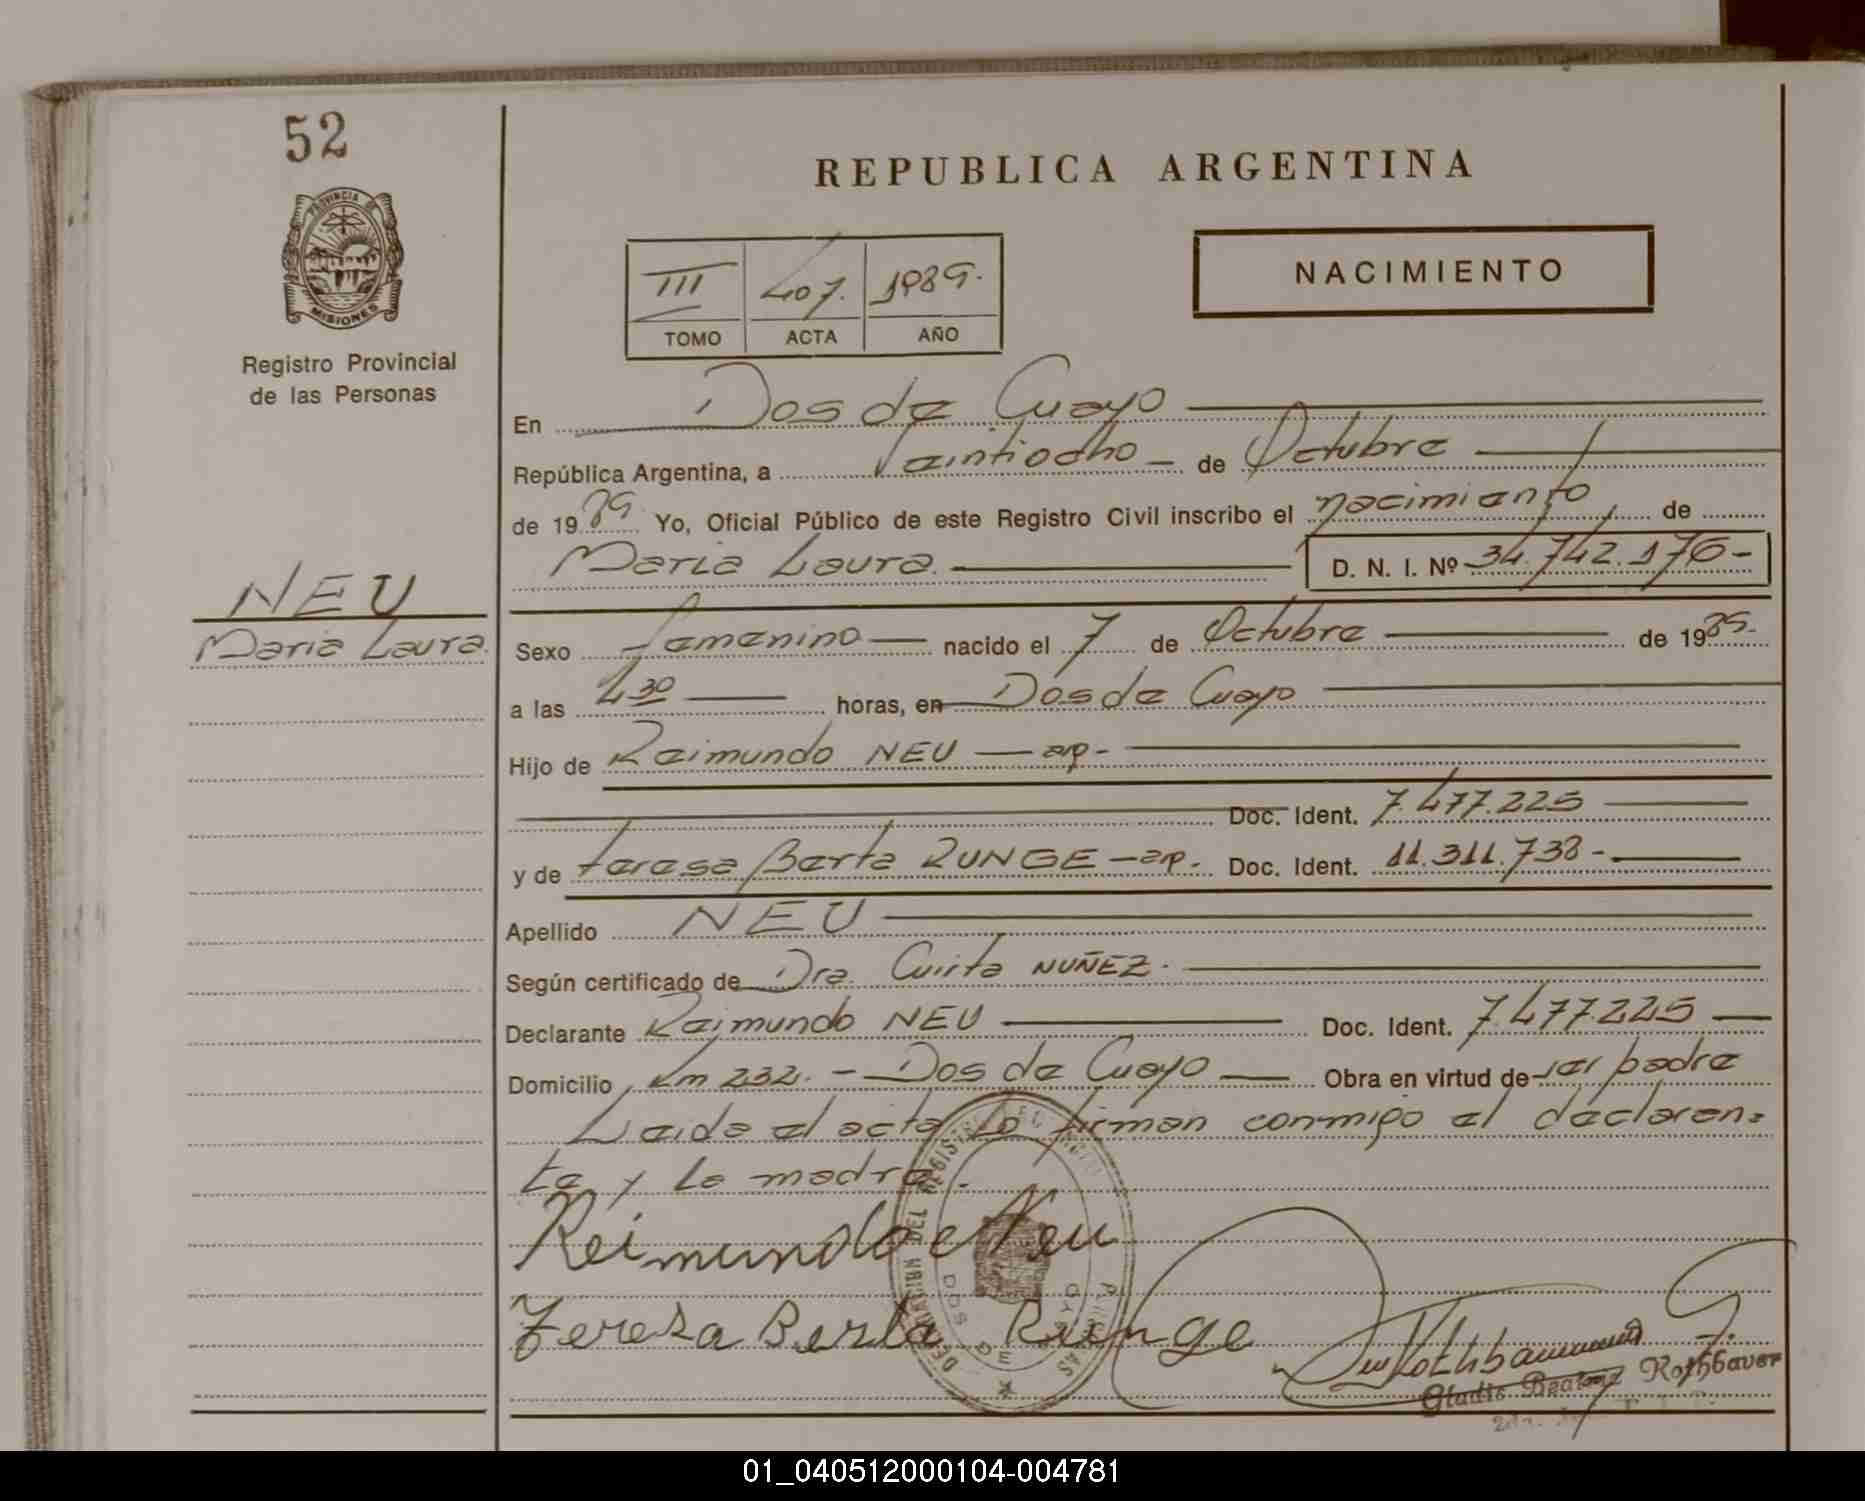 52
PROVINCIA DE
MISIONES
Registro Provincial
de las Personas
NEU
Maria Laura
REPUBLICA ARGENTINA
III 407. 1989.
TOMO ACTA AÑO
NACIMIENTO
En Dos de Mayo
República Argentina, a Veintiocho - de Octubre
de 1989 Yo, Oficial Público de este Registro Civil inscribo el nacimiento de
Maria Laura. D. N. I. Nº 34.742.176-
Sexo Femenino nacido el 7 de Octubre de 1989-
a las 4 30 horas, en Dos de Mayo
Hijo de Raimundo NEU - arg-
Doc. Ident. 7.477.225
y de Teresa Berta RUNGE - arg- Doc. Ident. 11.311.738-
Apellido NEU
Según certificado de Dra. NUÑEZ.
Declarante Raimundo NEU Doc. Ident. 7.477.225
Domicilio Km 232. - Dos de Mayo Obra en virtud de ser padre
Leida el acta la firman conmigo el declaran=
te y la madre.
Reimundo Neu
Tereza Berta Runge
DOS DE MAYO
Gladis Beatriz Rothbauer
01_040512000104-004781